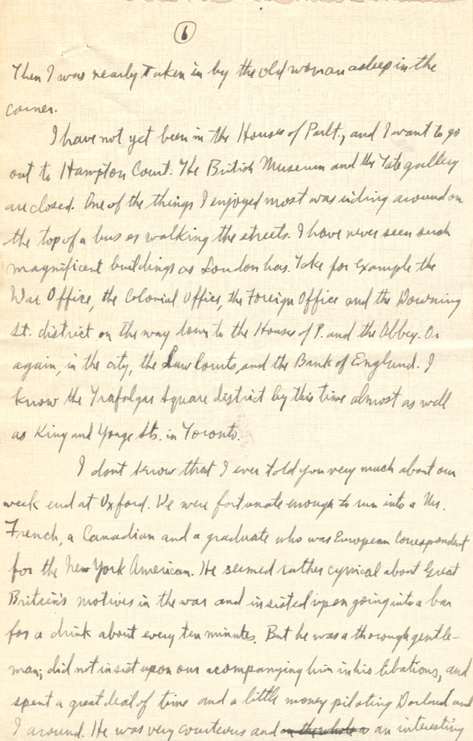 6
Then I was nearly taken in by the old woman asleep in the
corner.
I have not yet been in the Houses of Parlt., and I want to go
out to Hampton Court. The British Museum and the Tate gallery
are closed. One of the things I enjoyed most was riding around on
the top of a bus or walking the streets. I have never seen such
magnificent buildings as London has. Take for example the
War Office, the Colonial Office, the Foreign Office and the Downing
St. district on the way down to the Houses of P. and the Abbey. Or
again, in the city, the Law Courts, and the Bank of England. I
know the Trafalgar Square district by this time almost as well
as King and Yonge Sts. in Toronto.
I dont know that I ever told you very much about our
week end at Oxford. We were fortunate enough to run into a Mr.
French, a Canadian and a graduate who was European Correspondent
for the New York American. He seemed rather cynical about Great
Britain's motives in the war and insisted upon going into a bar
for a drink about every ten minutes. But he was a thorough gentle-
man; did not insist upon our acompanying him in his libations, and
spent a great deal of time and a little money piloting Dorland and
I around. He was very courteous and an interesting